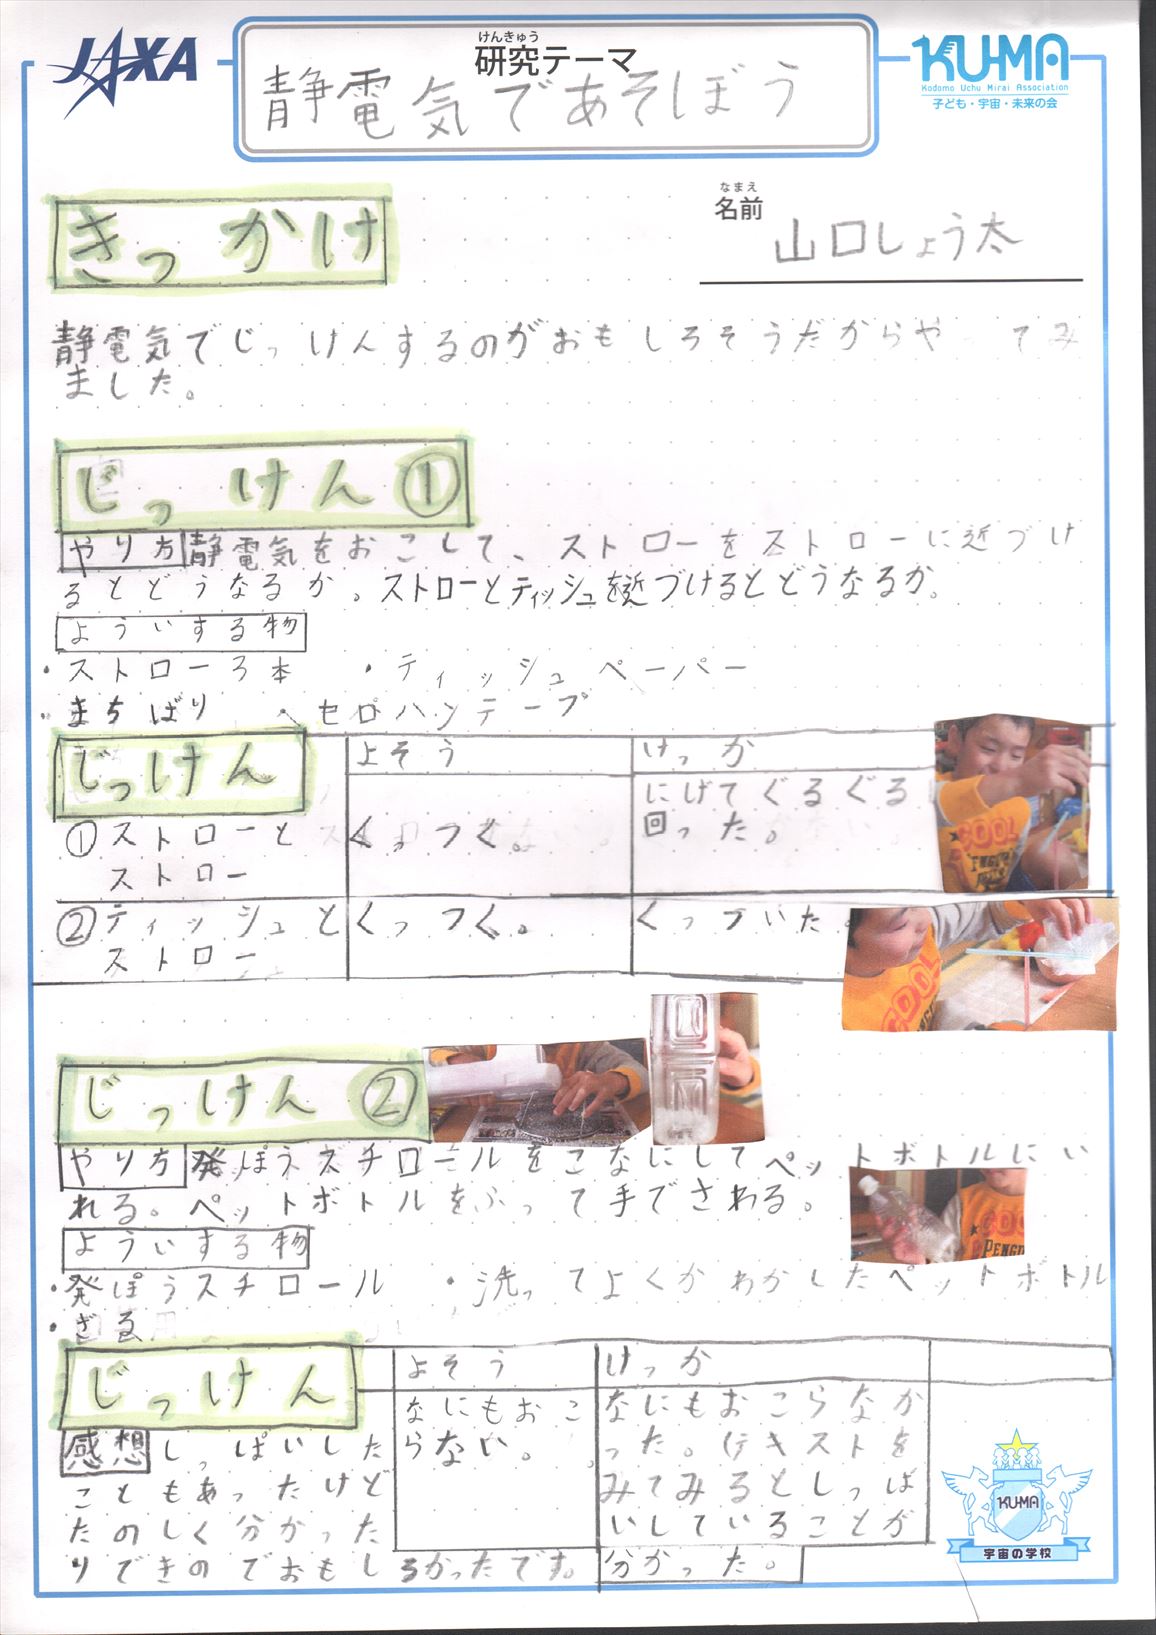 JAXA
けんきゅう
研究テーマ
静電気であそぼう
KUMA
Kodomo Uchu Mirai Association
子ども・宇宙・未来の会
なまえ
名前
山口しょう太
きっかけ
静電気でじっけんするのがおもしろそうだからやってみ
ました。
じっけん①
やり方 静電気をおこして、ストローをストローに近づけ
るとどうなるか。ストローとティッシュを近づけるとどうなるか。
よういする物
・ストロー3本 ・ティッシュペーパー
・まちばり ・セロハンテープ
じっけん よそう けっか
①ストローと
ストロー
くっつく。
にげてぐるぐる
回った。
②ティッシュと
ストロー
くっつく。
くっついた。
じっけん②
やり方 発ぽうスチロールをこなにしてペットボトルにい
れる。ペットボトルをふって手でさわる。
よういする物
・発ぽうスチロール ・洗ってよくかわかしたペットボトル
・ざる
じっけん よそう けっか
なにもおこ
らない。
なにもおこらなか
った。(テキストを
みてみるとしっぱ
いしていることが
分かった。
感想 しっぱいした
こともあったけど
たのしく分かった
りできのでおもしろかったです。
KUMA
宇宙の学校